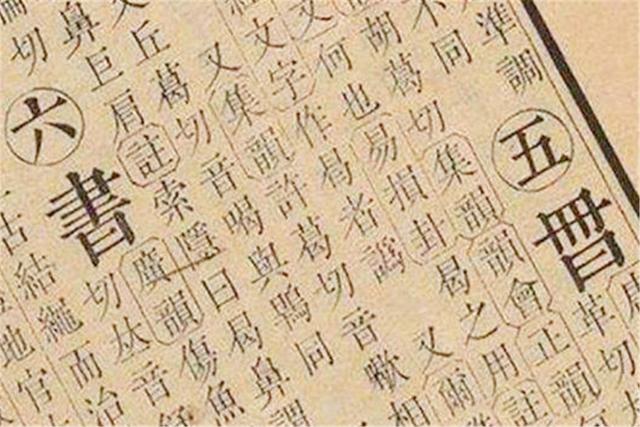 準調五
不同
胡葛切集韻韻會正韻
革切
何也易損卦曷之用註
文字作曷者譌又爾
又集韻許葛切音
相
丘葛切音喝與鶡同
鼻巨肩註索隱曰曷鼻謂
切六書廣韻傷魚
切丛音
結繩而治
地官